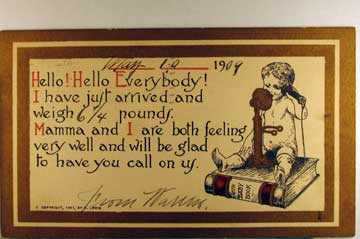 May 10 1909
Hello! Hello Everybody!
I have just arrived and
weigh 6¼ pounds.
Mamma and I are both feeling
very well and will be glad
to have you call on us.
BABY BOOK
© COPYRIGHT, 1907, BY
From